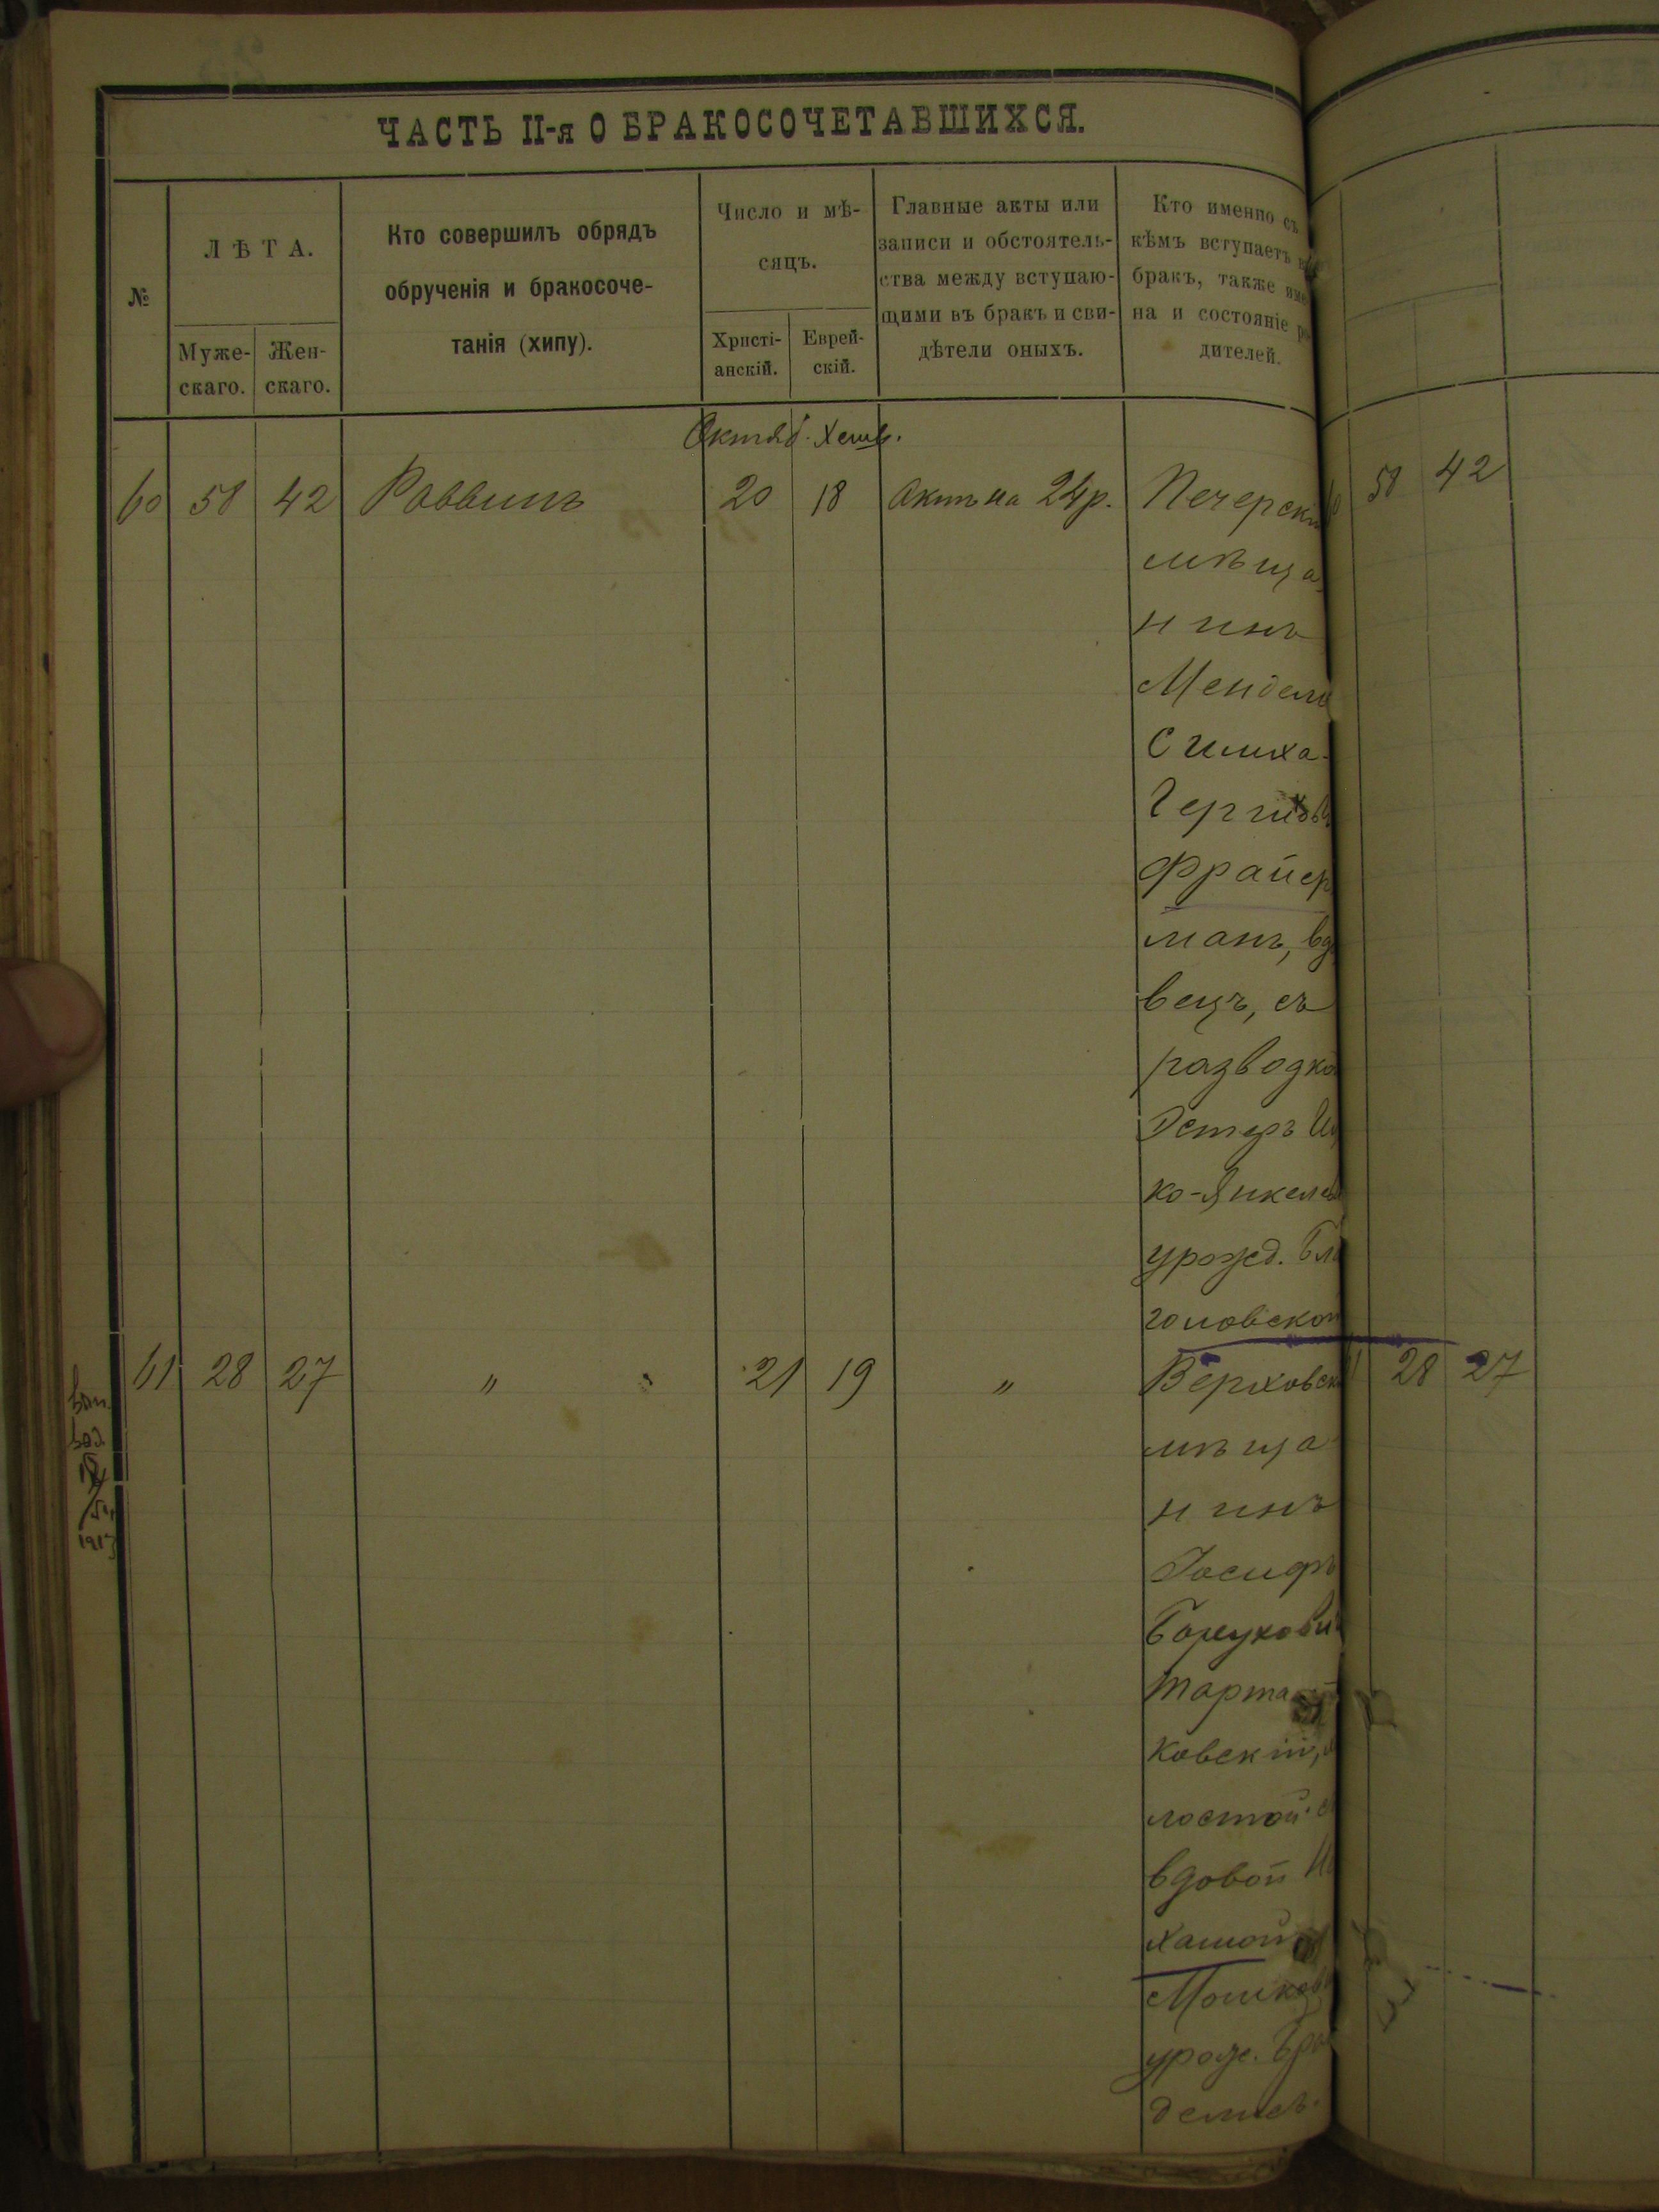 ЧАСТЬ II-я О БРАКОСОЧЕТАВШИХСЯ.
№
ЛѢТА.
Муже-
скаго.
Жен-
скаго.
Кто совершилъ обрядъ
обрученія и бракосоче-
танія (хипу).
Число и мѣ-
сяцъ.
Христі-
анскій.
Еврей-
скій.
Главные акты или
записи и обстоятель-
ства между вступаю-
щими въ бракъ и сви-
дѣтели оныхъ.
Кто именно съ
кѣмъ вступаетъ
бракъ, также име
на и состояніе ро
дителей.
Октяб. Хешв.
60 58 42 Раввинъ 20 18 Актъ на 24 р. Печерскі
мѣща
нинъ
Мендель
Симха-
Фрайер
манъ, вдо
вецъ, съ
разводкой
Эстеръ Иц
ко-Янкелев
урожд. Бла
головской
61 28 27 " " 21 19 " Верховск
мѣща
нинъ
Іосифъ
Борухови
Тарта
ковскій,
лостой съ
вдовой
Мошков
урож. Бро
58 42
28 27
1913